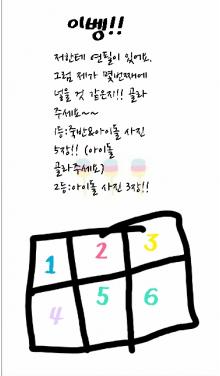 이벵!!
저한테 연필이 있어요.
그럼 제가 몇번째에
넣을 것 같은지!! 골라
주세요~~
1등:죽반&아이돌 사진
5장!! (아이돌
골라주세요)
2등:아이돌 사진 3장!!
1 2 3
4 5 6